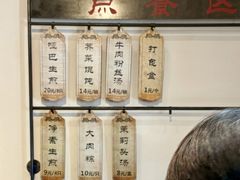 点餐区
哑巴生煎
20元/8只
荠菜馄饨
14元/碗
牛肉粉丝汤
14元/碗
打包盒
1元/个
净素生煎
9元/4只
大肉粽
10元/只
茉莉头汤
8元/盅